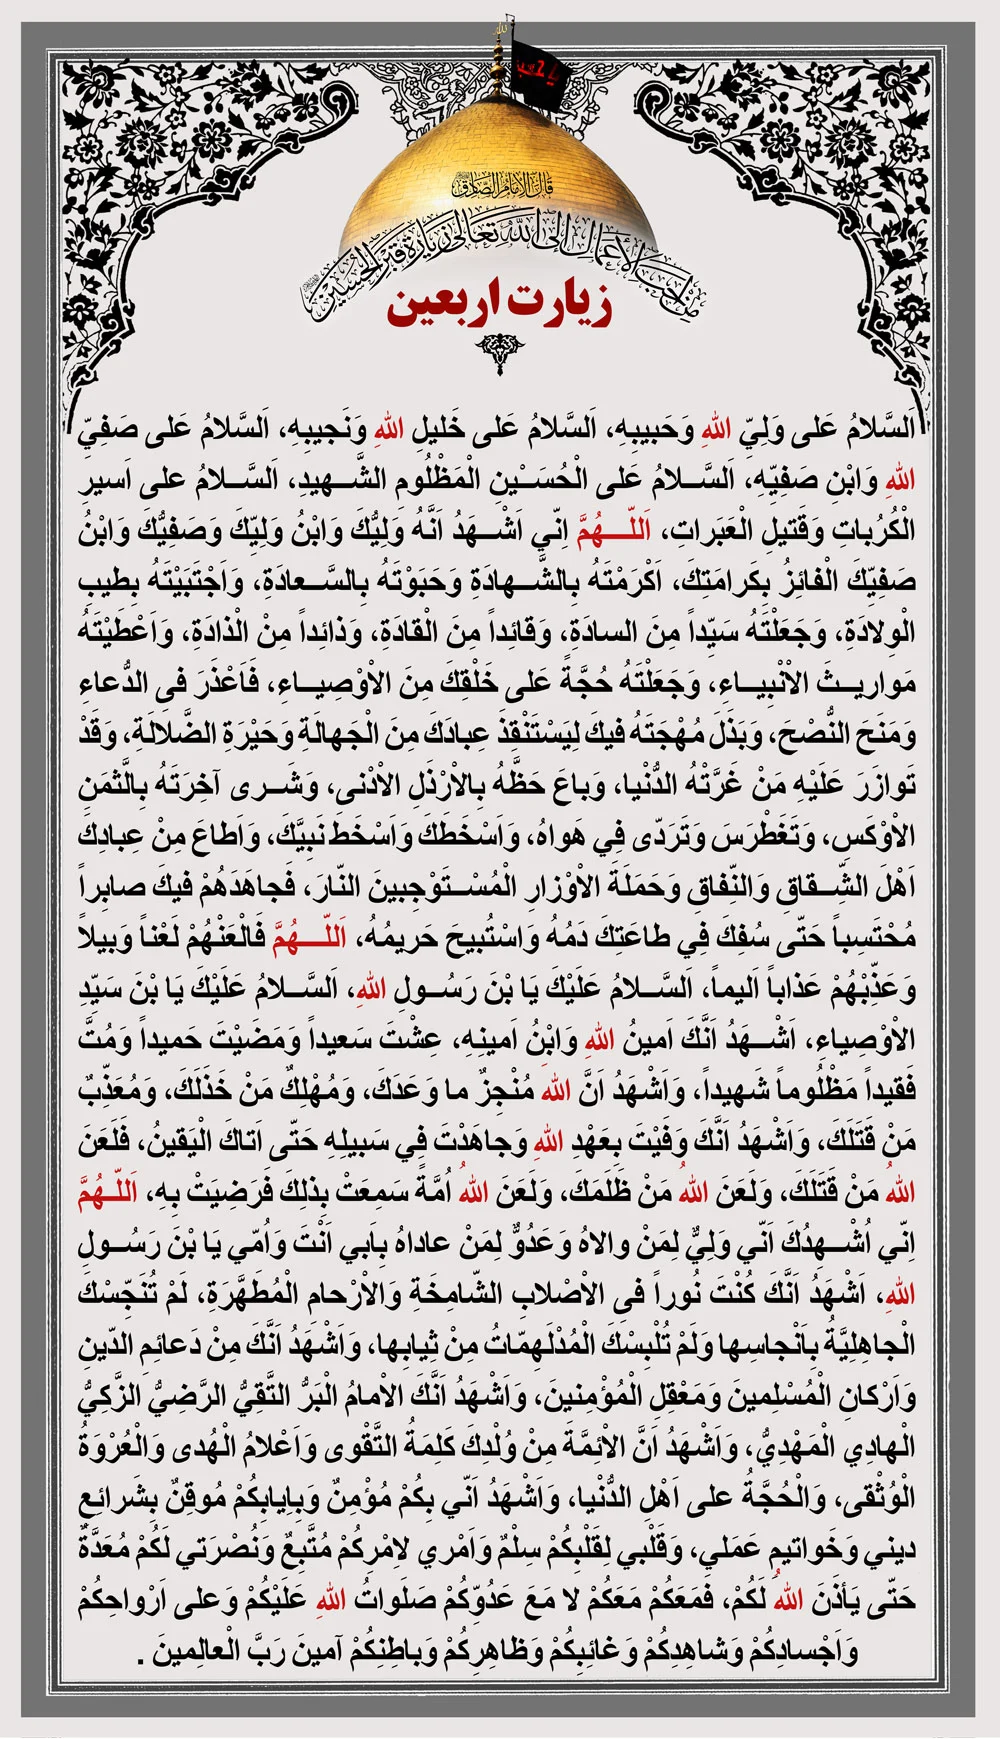 يا حسين
قال الإمام الصادق
من أحب الأعمال إلى الله تعالى زيارة قبر الحسين
زیارت اربعین
اَلسَّلامُ عَلى وَلِيِّ اللهِ وَحَبيبِهِ، اَلسَّلامُ عَلى خَليلِ اللهِ وَنَجيبِهِ، اَلسَّلامُ عَلى صَفِيِّ
اللهِ وَابْنِ صَفِيِّهِ، اَلسَّـلامُ عَلى الْحُسَـيْنِ الْمَظْلُومِ الشَّـهيدِ، اَلسَّـلامُ على اَسيرِ
الْكُرُباتِ وَقَتيلِ الْعَبَراتِ، اَللّـهُمَّ اِنّي اَشْـهَدُ اَنَّهُ وَلِيُّكَ وَابْنُ وَلِيِّكَ وَصَفِيُّكَ وَابْنُ
صَفِيِّكَ الْفائِزُ بِكَرامَتِكَ، اَكْرَمْتَهُ بِالشَّـهادَةِ وَحَبَوْتَهُ بِالسَّـعادَةِ، وَاَجْتَبَيْتَهُ بِطيبِ
الْوِلادَةِ، وَجَعَلْتَهُ سَيِّداً مِنَ السادَةِ، وَقائِداً مِنَ الْقادَةِ، وَذائِداً مِنْ الْذادَةِ، وَاَعْطَيْتَهُ
مَواريـثَ الاَْنْبِيـاءِ، وَجَعَلْتَهُ حُجَّةً عَلى خَلْقِكَ مِنَ الاَْوْصِيـاءِ، فَاَعْذَرَ فى الدُّعاءِ
وَمَنَحَ النُّصْحَ، وَبَذَلَ مُهْجَتَهُ فيكَ لِيَسْتَنْقِذَ عِبادَكَ مِنَ الْجَهالَةِ وَحَيْرَةِ الضَّلالَةِ، وَقَدْ
تَوازَرَ عَلَيْهِ مَنْ غَرَّتْهُ الدُّنْيا، وَباعَ حَظَّهُ بِالاَْرْذَلِ الاَْدْنى، وَشَـرى آخِرَتَهُ بِالَّثمَنِ
الاَْوْكَسِ، وَتَغَطْرَسَ وَتَرَدّى فِي هَواهُ، وَاَسْخَطَكَ وَاَسْخَطَ نَبِيَّكَ، وَاَطاعَ مِنْ عِبادِكَ
اَهْلَ الشِّـقاقِ وَالنِّفاقِ وَحَمَلَةَ الاَْوْزارِ الْمُسْـتَوْجِبينَ النّارَ، فَجاهَدَهُمْ فيكَ صابِراً
مُحْتَسِباً حَتّى سُفِكَ فِي طاعَتِكَ دَمُهُ وَاسْتُبيحَ حَريمُهُ، اَللّـهُمَّ فَالْعَنْهُمْ لَعْناً وَبيلاً
وَعَذِّبْهُمْ عَذاباً اَليماً، اَلسَّـلامُ عَلَيْكَ يَا بْنَ رَسُـولِ اللهِ، اَلسَّـلامُ عَلَيْكَ يَا بْنَ سَيِّدِ
الاَْوْصِياءِ، اَشْـهَدُ اَنَّكَ اَمينُ اللهِ وَابْنُ اَمينِهِ، عِشْتَ سَعيداً وَمَضَيْتَ حَميداً وَمُتَّ
فَقيداً مَظْلُوماً شَهيداً، وَاَشْهَدُ اَنَّ اللهَ مُنْجِزٌ ما وَعَدَكَ، وَمُهْلِكٌ مَنْ خَذَلَكَ، وَمُعَذِّبٌ
مَنْ قَتَلَكَ، وَاَشْهَدُ اَنَّكَ وَفَيْتَ بِعَهْدِ اللهِ وَجاهَدْتَ فِي سَبيلِهِ حَتّى اَتاكَ الْيَقينُ، فَلَعَنَ
اللهُ مَنْ قَتَلَكَ، وَلَعَنَ اللهُ مَنْ ظَلَمَكَ، وَلَعَنَ اللهُ اُمَّةً سَمِعَتْ بِذلِكَ فَرَضِيَتْ بِهِ، اَللّـهُمَّ
اِنّي اُشْـهِدُكَ اَنّي وَلِيٌّ لِمَنْ والاهُ وَعَدُوٌّ لِمَنْ عاداهُ بِاَبي اَنْتَ وَاُمّي يَا بْنَ رَسُـولِ
اللهِ، اَشْهَدُ اَنَّكَ كُنْتَ نُوراً فى الاَْصْلابِ الشّامِخَةِ وَالاَْرْحامِ الْمُطَهَّرَةِ، لَمْ تُنَجِّسْكَ
الْجاهِلِيَّةُ بِاَنْجاسِها وَلَمْ تُلْبِسْكَ الْمُدْلَهِمّاتُ مِنْ ثِيابِها، وَاَشْهَدُ اَنَّكَ مِنْ دَعائِمِ الدّينِ
وَاَرْكانِ الْمُسْلِمينَ وَمَعْقِلِ الْمُؤْمِنينَ، وَاَشْهَدُ اَنَّكَ الاِْمامُ الْبَرُّ التَّقِيُّ الرَّضِيُّ الزَّكِيُّ
الْهادِي الْمَهْدِيُّ، وَاَشْهَدُ اَنَّ الاَْئِمَّةَ مِنْ وُلْدِكَ كَلِمَةُ التَّقْوى وَاَعْلامُ الْهُدى وَالْعُرْوَةُ
الْوُثْقى، وَالْحُجَّةُ على اَهْلِ الدُّنْيا، وَاَشْهَدُ اَنّي بِكُمْ مُؤْمِنٌ وَبِاِيابِكُمْ مُوقِنٌ بِشَرائِعِ
ديني وَخَواتيمِ عَمَلي، وَقَلْبي لِقَلْبِكُمْ سِلْمٌ وَاَمْري لاَِمْرِكُمْ مُتَّبِعٌ وَنُصْرَتي لَكُمْ مُعَدَّةٌ
حَتّى يَأذَنَ اللهُ لَكُمْ، فَمَعَكُمْ مَعَكُمْ لا مَعَ عَدُوِّكُمْ صَلَواتُ اللهِ عَلَيْكُمْ وَعلى اَرْواحِكُمْ
وَاَجْسادِكُمْ وَشاهِدِكُمْ وَغائِبِكُمْ وَظاهِرِكُمْ وَباطِنِكُمْ آمينَ رَبَّ الْعالِمينَ .